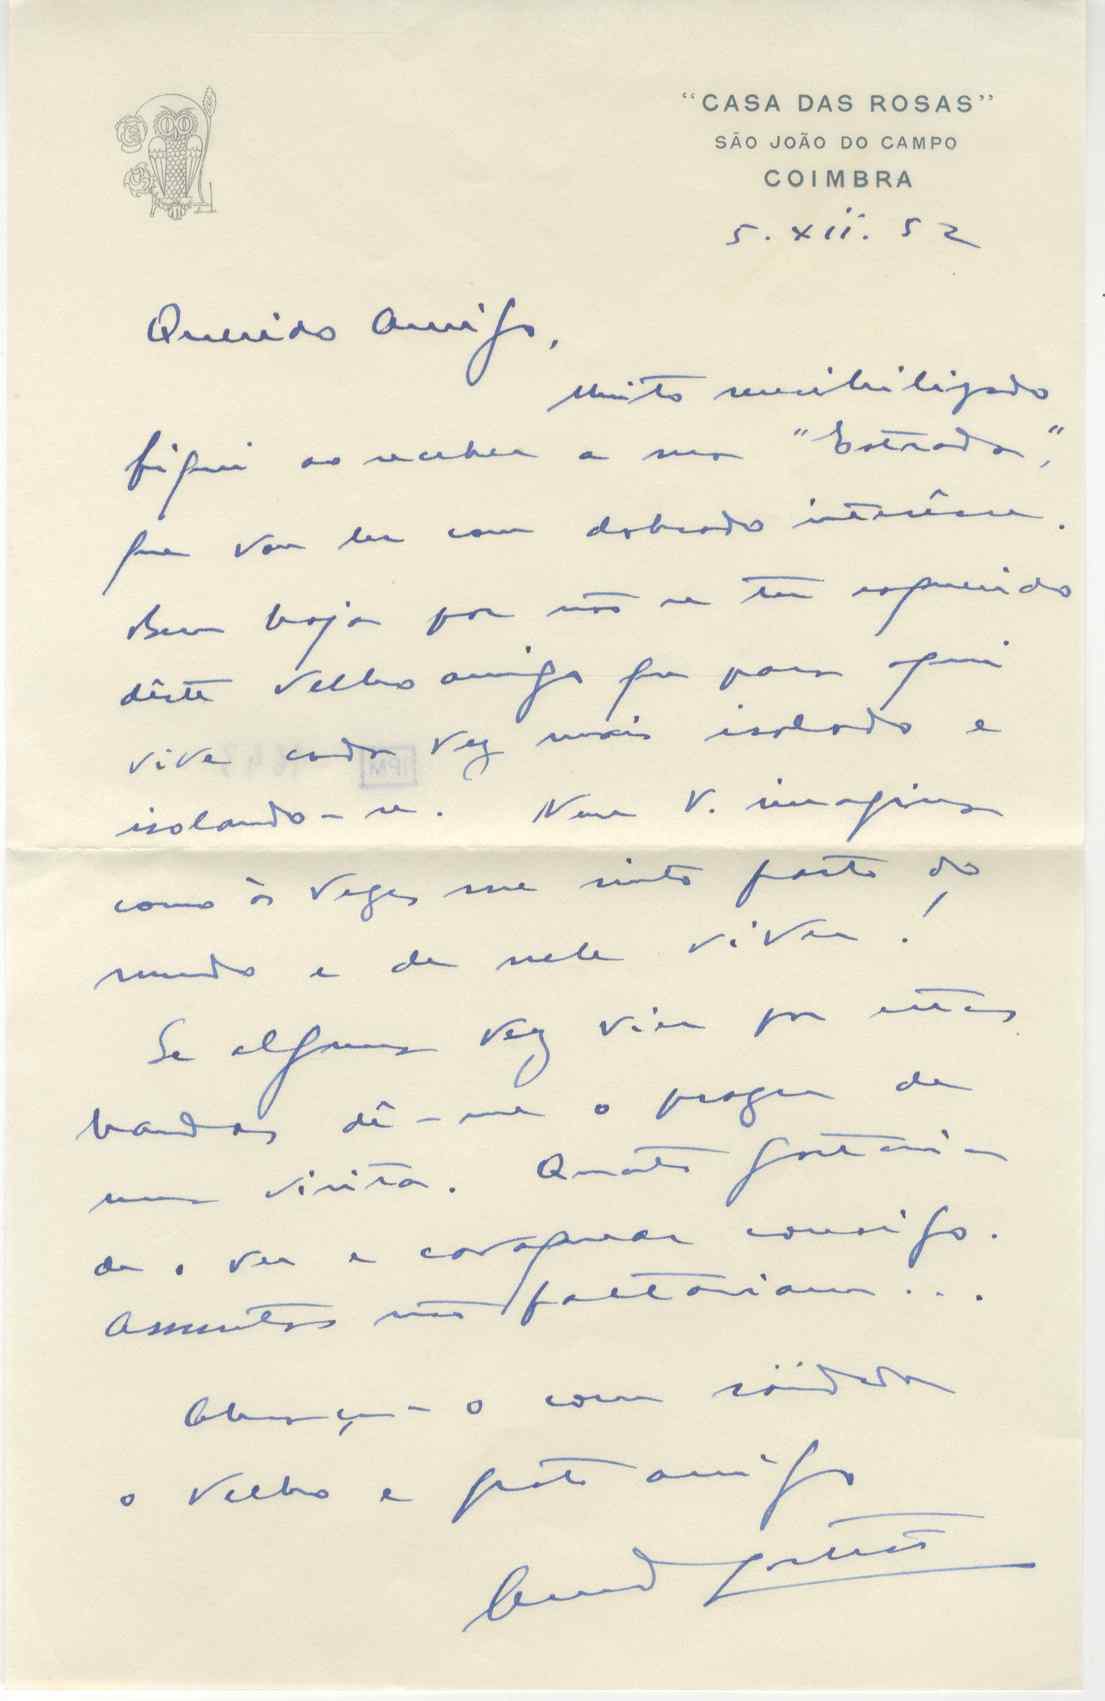 "CASA DAS ROSAS"
SÃO JOÃO DO CAMPO
COIMBRA
5. XII. 52
Querido Amigo,
Muito sensibilizado
fiquei ao receber a sua "Estrada",
que vou ler com dobrado interêsse.
Bem haja por não se ter esquecido
dêste velho amigo que para aqui
vive cada vez mais isolado e
isolando-se. Nem V. imagina
como às vezes me sinto farto do
mundo e de nele viver!
Se alguma vez vier por estas
bandas dê-me o prazer da
sua visita. Quanto gostaria
de o ver e cavaquear consigo.
Assuntos não faltariam...
Abraça-o com saüdade
o velho e grato amigo